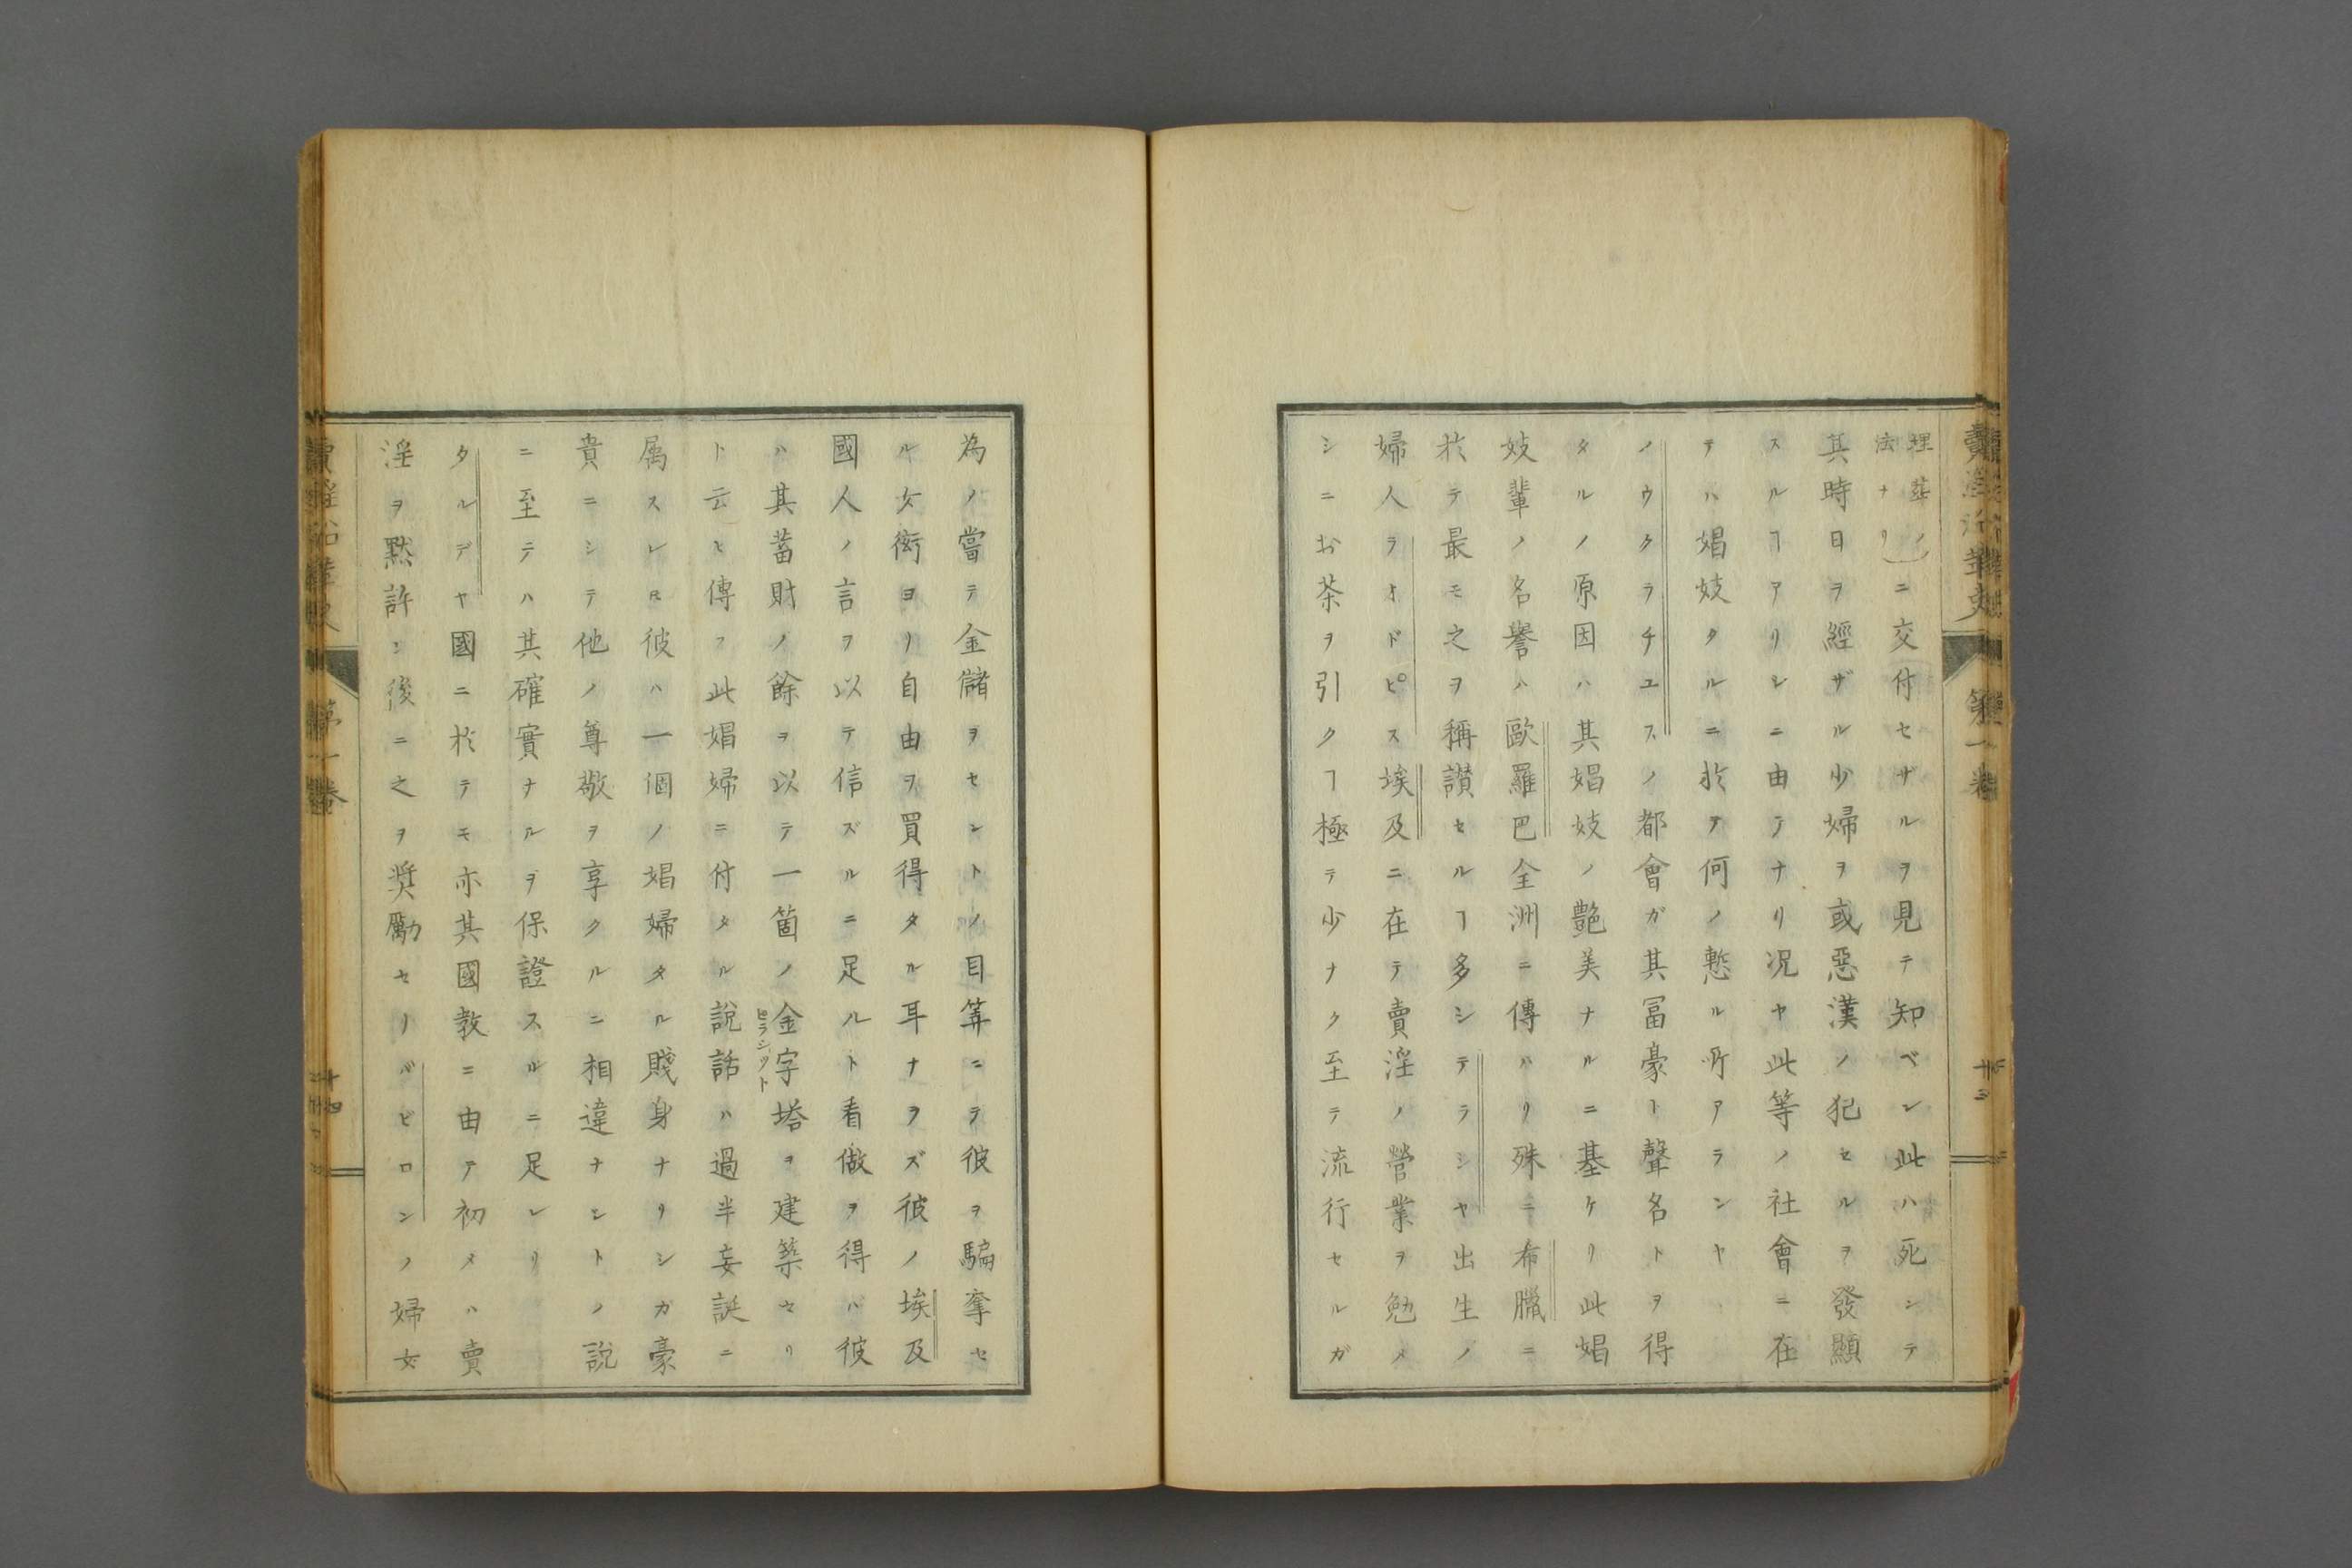 埋葬ノ
法ナリ
ニ交付セザルヲ見テ知ベシ此ハ死シテ
其時日ヲ經ザル少婦ヲ或惡漢ノ犯セルヲ發顯
スルヿアリシニ由テナリ况ヤ此等ノ社會ニ在
テハ娼妓タルニ於テ何ノ慙ル所アランヤ
ノウクラチユスノ都會ガ其冨豪ト聲名トヲ得
タルノ原因ハ其娼妓ノ艶美ナルニ基ケリ此娼
妓輩ノ名譽ハ歐羅巴全洲ニ傳ハリ殊ニ布臘ニ
於テ最モ之ヲ稱讃セルヿ多シテラシヤ出生ノ
婦人ラオドピス埃及ニ在テ賣淫ノ營業ヲ勉メ
シニお茶ヲ引クヿ極テ少ナク至テ流行セルガ
為ノ當テ金儲ヲセントノ目筭ニテ彼ヲ騙奪セ
ル女衒ヨリ自由ヲ買得タル耳ナラズ彼ノ埃及
國人ノ言ヲ以テ信ズルニ足ルト看做ヲ得バ彼
ハ其蓄財ノ餘ヲ以テ一箇ノ金字塔ヲ建築セリ
ト云ヒ傳フ此娼婦ニ付タル說話ハ過半妄誕ニ
属スレ𪜈彼ハ一個ノ娼婦タル賤身ナリシガ豪
貴ニシテ他ノ尊敬ヲ享クルニ相違ナシトノ說
ニ至テハ其確實ナルヲ保證スルニ足レリ
タルデヤ國ニ於テモ亦其國教ニ由テ初メハ賣
淫ヲ黙許シ後ニ之ヲ奨勵セリバビロンノ婦女
第一卷
十三
第一卷
十四